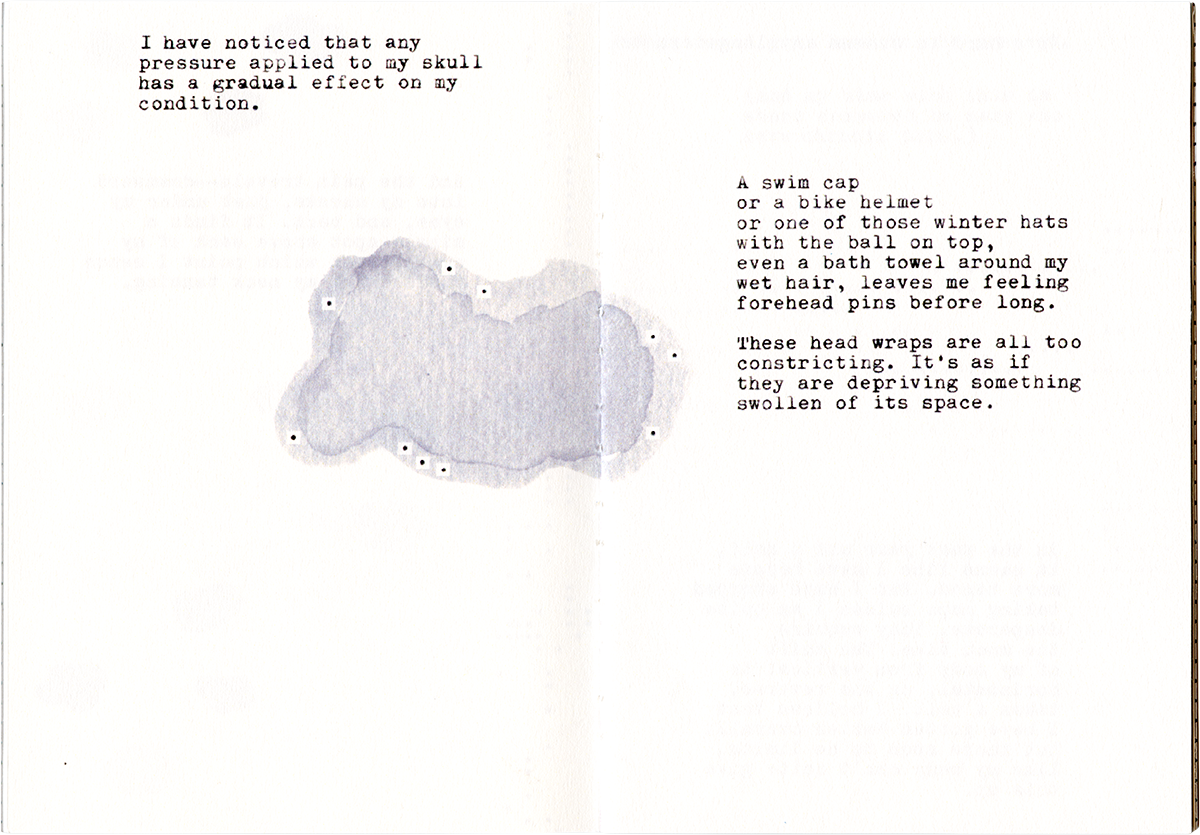 I have noticed that any
pressure applied to my skull
has a gradual effect on my
condition.
A swim cap
or a bike helmet
or one of those winter hats
with the ball on top,
even a bath towel around my
wet hair, leaves me feeling
forehead pins before long.
These head wraps are all too
constricting. It's as if
they are depriving something
swollen of its space.